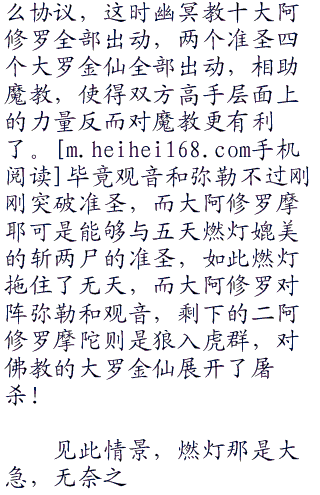 么协议，这时幽冥教十大阿
修罗全部出动，两个准圣四
个大罗金仙全部出动，相助
魔教，使得双方高手层面上
的力量反而对魔教更有利
了。[m.heihei168.com手机
阅读]毕竟观音和弥勒不过刚
刚突破准圣，而大阿修罗摩
耶可是能够与五天燃灯媲美
的斩两尸的准圣，如此燃灯
拖住了无天，而大阿修罗对
阵弥勒和观音，剩下的二阿
修罗摩陀则是狼入虎群，对
佛教的大罗金仙展开了屠
杀！
见此情景，燃灯那是大
急，无奈之